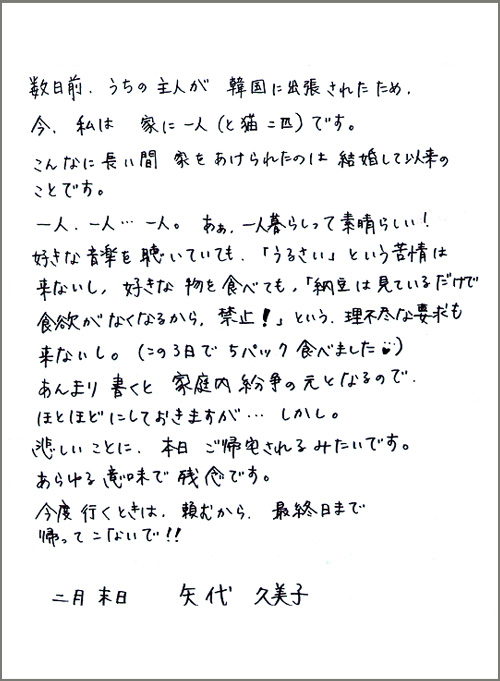 数日前、うちの主人が 韓国に出張されたため、
今、私は 家に一人(と猫二匹)です。
こんなに長い間 家をあけられたのは 結婚して以来の
ことです。
一人、一人…一人。 あぁ、一人暮らしって素晴らしい!
好きな音楽を聴いていても、「うるさい」という苦情は
来ないし、好きな物を食べても、「納豆は見ているだけで
食欲がなくなるから、禁止!」という、理不尽な要求も
来ないし。(この3日で5パック食べました)
あんまり書くと 家庭内紛争の元となるので、
ほとほどにしておきますが… しかし。
悲しいことに、本日 ご帰宅されるみたいです。
あらゆる意味で残念です。
今度行くときは、頼むから、最終日まで
帰ってこないで!!
二月末日 矢代 久美子